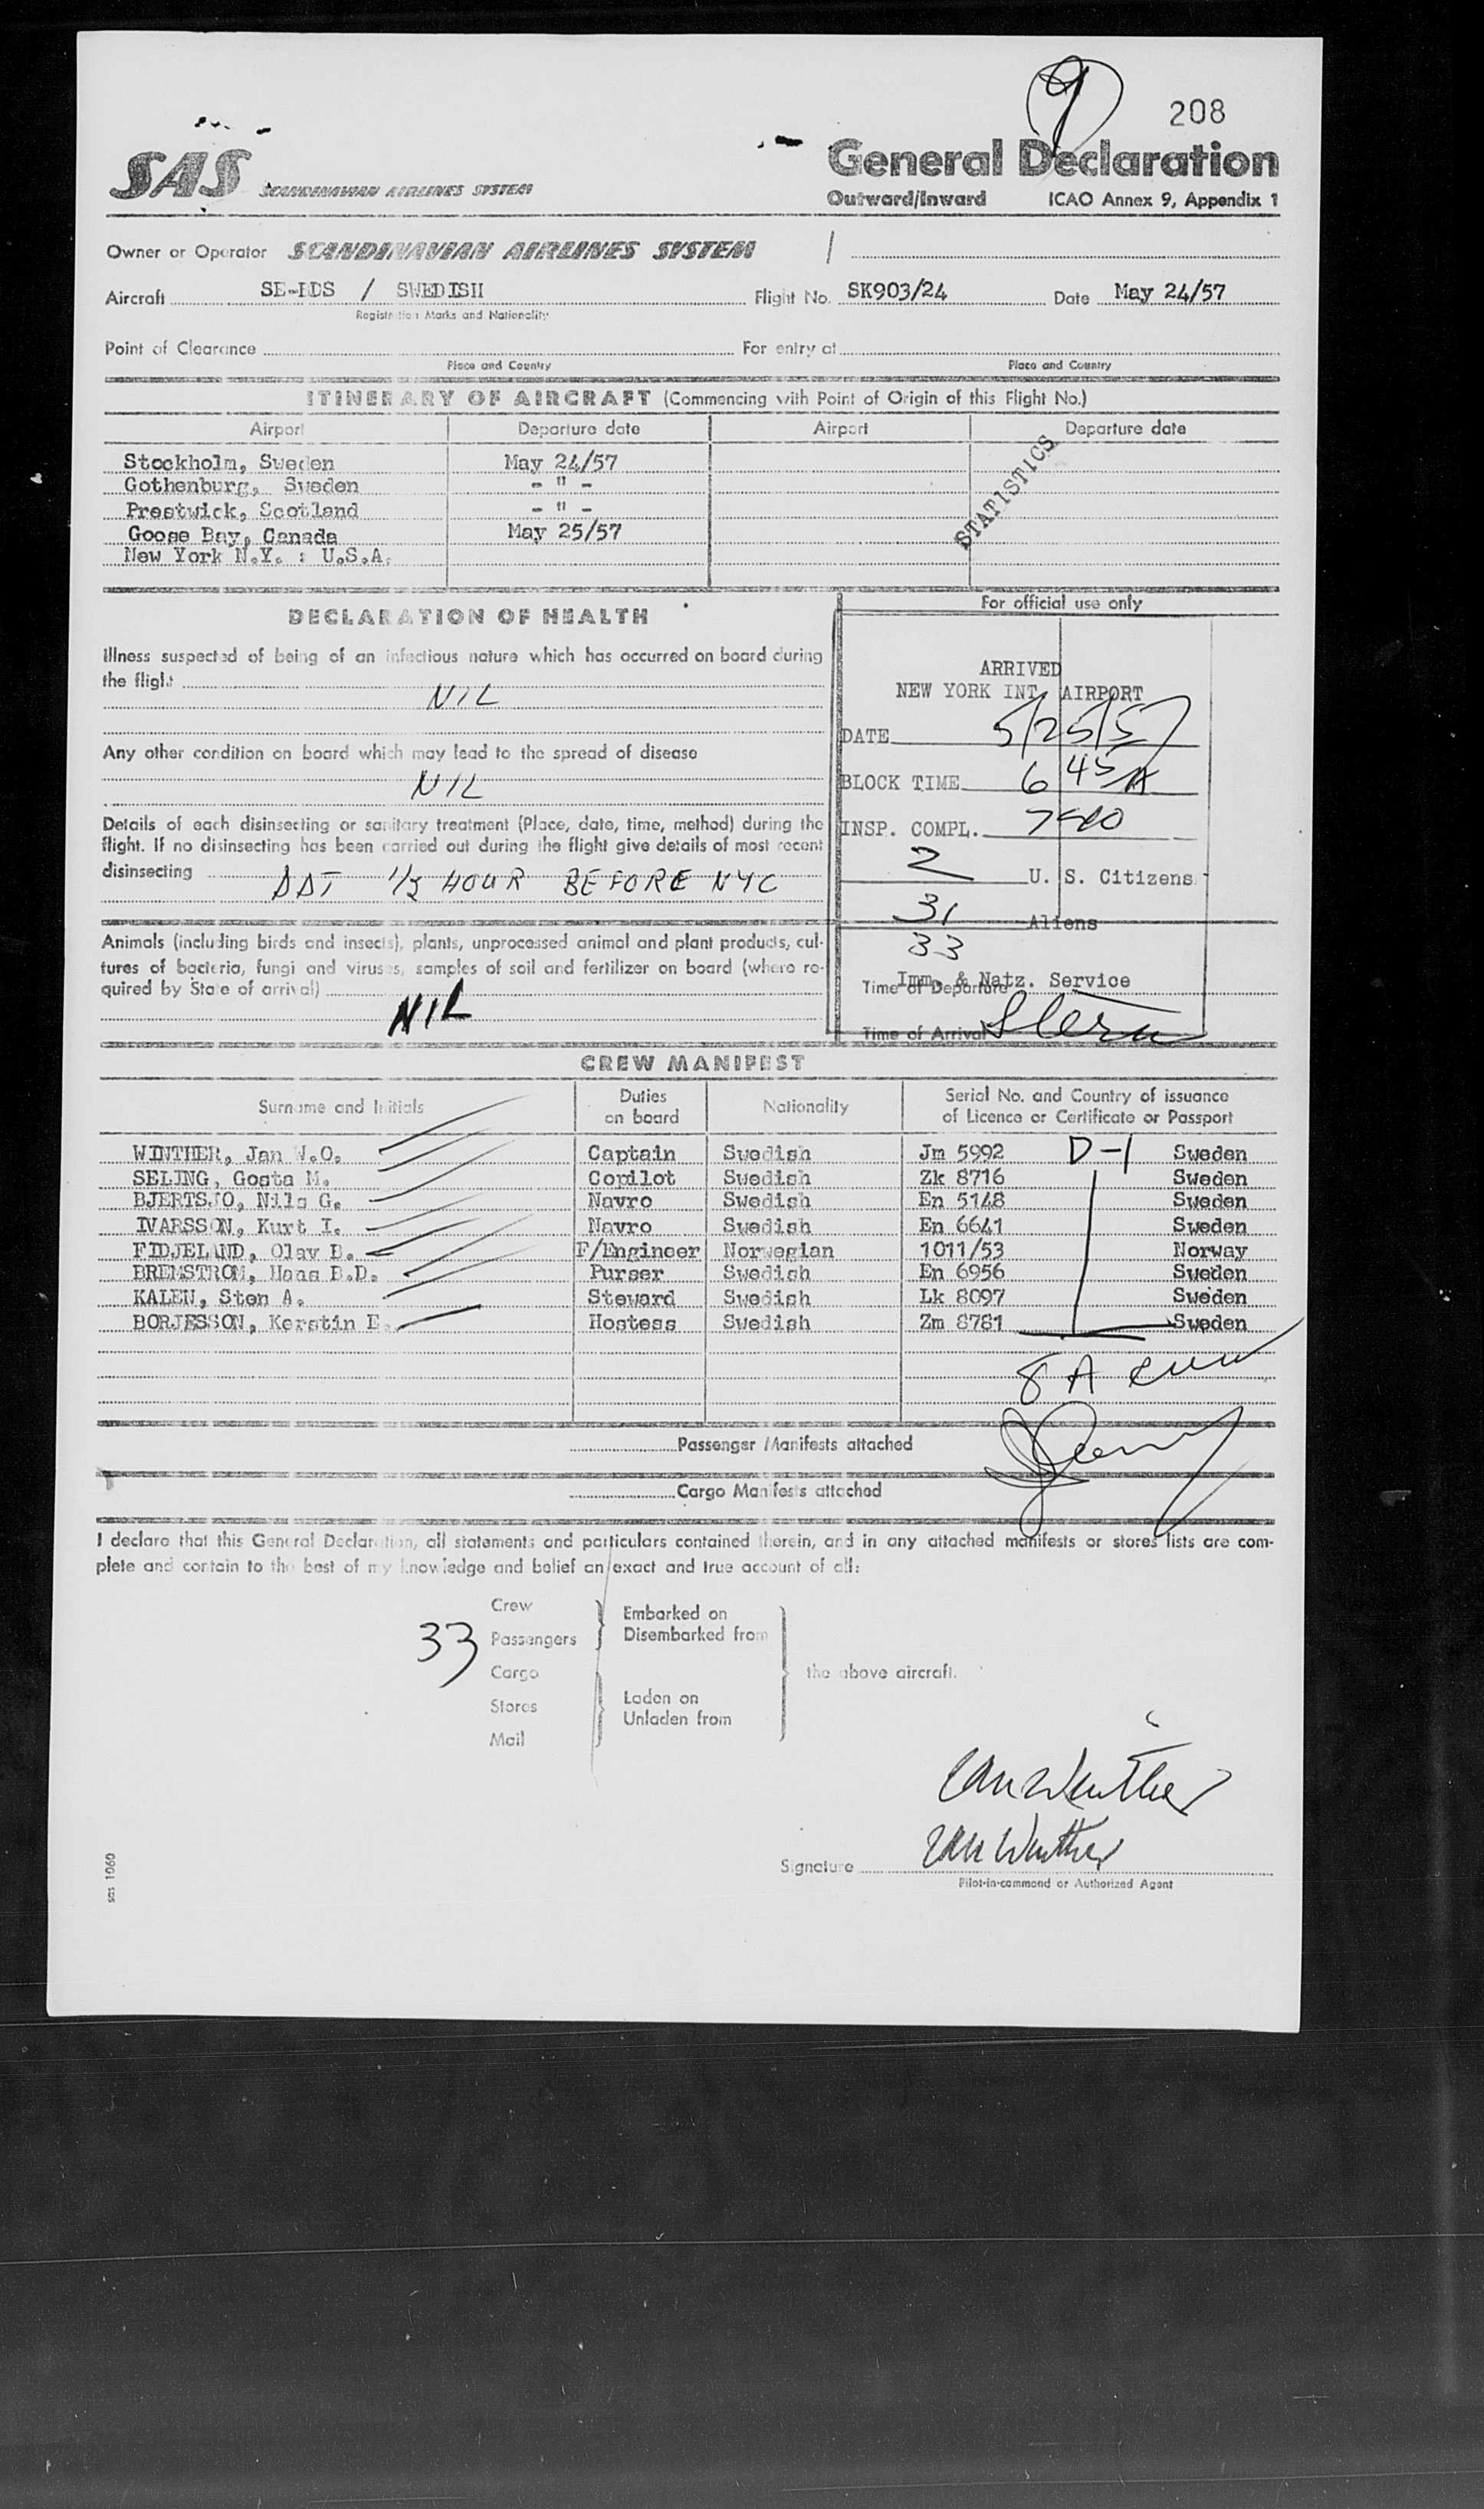 9
208
SAS SCANDINAVIAN AIRLINES SYSTEM
General Declaration
Outward/Inward ICAO Annex 9, Appendix 1
Owner or Operator SCANDINAVIAN AIRLINES SYSTEM
Aircraft SE-BDS / SWEDISH Flight No. SK903/24 Date May 24/57
Registration Marks and Nationality
Point of Clearance For entry at
Place and Country Place and Country
ITINERARY OF AIRCRAFT (Commencing with Point of Origin of this Flight No.)
Airport Departure date Airport Departure date
Stockholm, Sweden May 24/57
Gothenburg, Sweden - " -
Prestwick, Scotland - " -
Goose Bay, Canada May 25/57
New York N.Y. : U.S.A.
STATISTICS
DECLARATION OF HEALTH
Illness suspected of being of an infectious nature which has occurred on board during
the flight
NIL
Any other condition on board which may lead to the spread of disease
NIL
Details of each disinsecting or sanitary treatment (Place, date, time, method) during the
flight. If no disinsecting has been carried out during the flight give details of most recent
disinsecting DDT 1/2 HOUR BEFORE NYC
Animals (including birds and insects), plants, unprocessed animal and plant products, cul-
tures of bacteria, fungi and viruses, samples of soil and fertilizer on board (where re-
quired by State of arrival)
NIL
For official use only
ARRIVED
NEW YORK INT. AIRPORT
DATE 5/25/57
BLOCK TIME 6 45 A
INSP. COMPL.
2 U. S. Citizens
31 Aliens
33
Imm. & Natz. Service
Time of Departure
Time of Arrival Stern
CREW MANIFEST
Surname and Initials Duties on board Nationality Serial No. and Country of issuance of Licence or Certificate or Passport
WINTHER, Jan W.O. Captain Swedish Jm 5992 D-1 Sweden
SELING, Gosta M. Copilot Swedish Zk 8716 Sweden
BJERTSJO, Nils G. Navro Swedish En 5148 Sweden
IVARSSON, Kurt I. Navro Swedish En 6641 Sweden
FIDJELAND, Olav B. F/Engineer Norwegian 1011/53 Norway
BREMSTROM, Hans B.D. Purser Swedish En 6956 Sweden
KALEN, Sten A. Steward Swedish Lk 8097 Sweden
BORJESSON, Kerstin E. Hostess Swedish Zm 8781 Sweden
8 A crew
Passenger Manifests attached
Cargo Manifests attached
I declare that this General Declaration, all statements and particulars contained therein, and in any attached manifests or stores lists are com-
plete and contain to the best of my knowledge and belief an exact and true account of all:
33
Crew
Passengers
Cargo
Stores
Mail
Embarked on
Disembarked from
Laden on
Unladen from
the above aircraft.
Jan Winther
Signature Jan Winther
Pilot-in-command or Authorized Agent
sas 1060